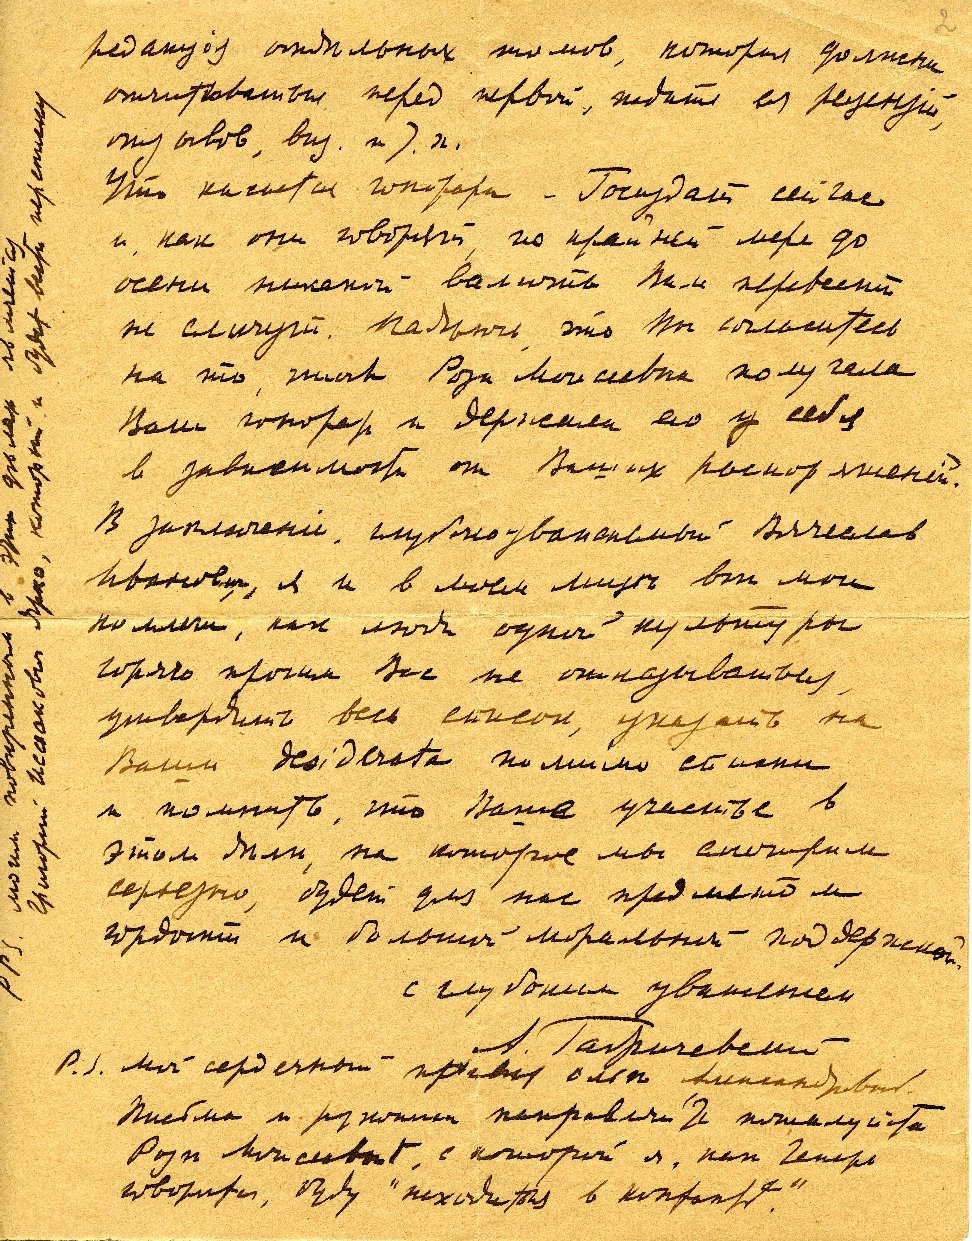 редакция отдельных томов, которая должна
отчитываться перед первой, ждать ея рецензий,
отзывов, виз. и т. п.
Что касается гонорара – Госиздат сейчас
и, как они говорят, по крайней мере до
осени никакой валюты Вам перевести
не смогут. Надеюсь, что Вы согласитесь
на то, чтоб Роза Моисеевна получала
Ваш гонорар и держала его у себя
в зависимости от Ваших распоряжений.
В заключение, глубокоуважаемый Вячеслав
Иванович, я и в моем лице все мои
коллеги, как люди одной культуры
горячо просим Вас не отказываться,
утвердить весь список, указать на
Ваши desiderata помимо списка
и помнить, что Ваше участие в
этом деле, на которое мы смотрим
серьезно, будет для нас предметом
гордости и большой моральной поддержкой.
с глубоким уважением
А. Габричевский
P.S. мой сердечный привет Ольге Александровне.
Письма и рукописи направляйте пожалуйста
Розе Моисеевне, с которой я, как теперь
говорится, буду "находиться в контакте."
PPS. моим поверенным в этих делах является
Григорий Исаакович, который и будет вести переписку